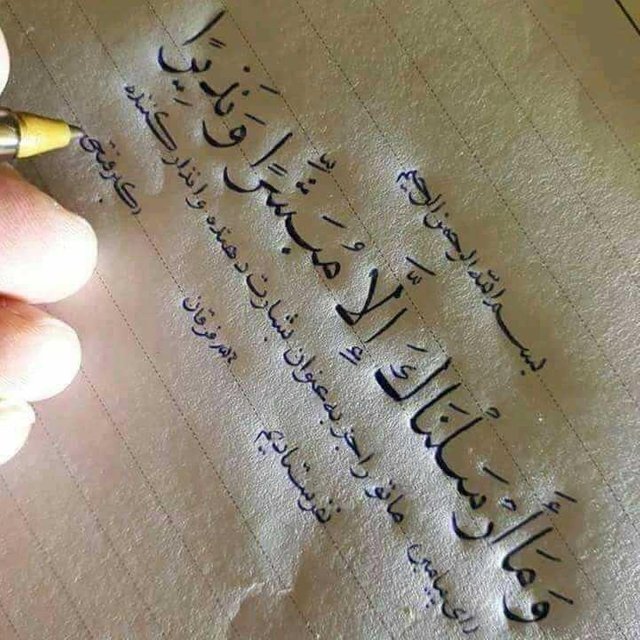 بسم الله الرحمن الرحیم
وَمَا أَرْسَلْنَاكَ إِلَّا مُبَشِّرًا وَنَذِيرًا
(ای پیامبر) ما تو را جز به عنوان بشارت دهنده و انذار کننده
نفرستادیم
فرقان